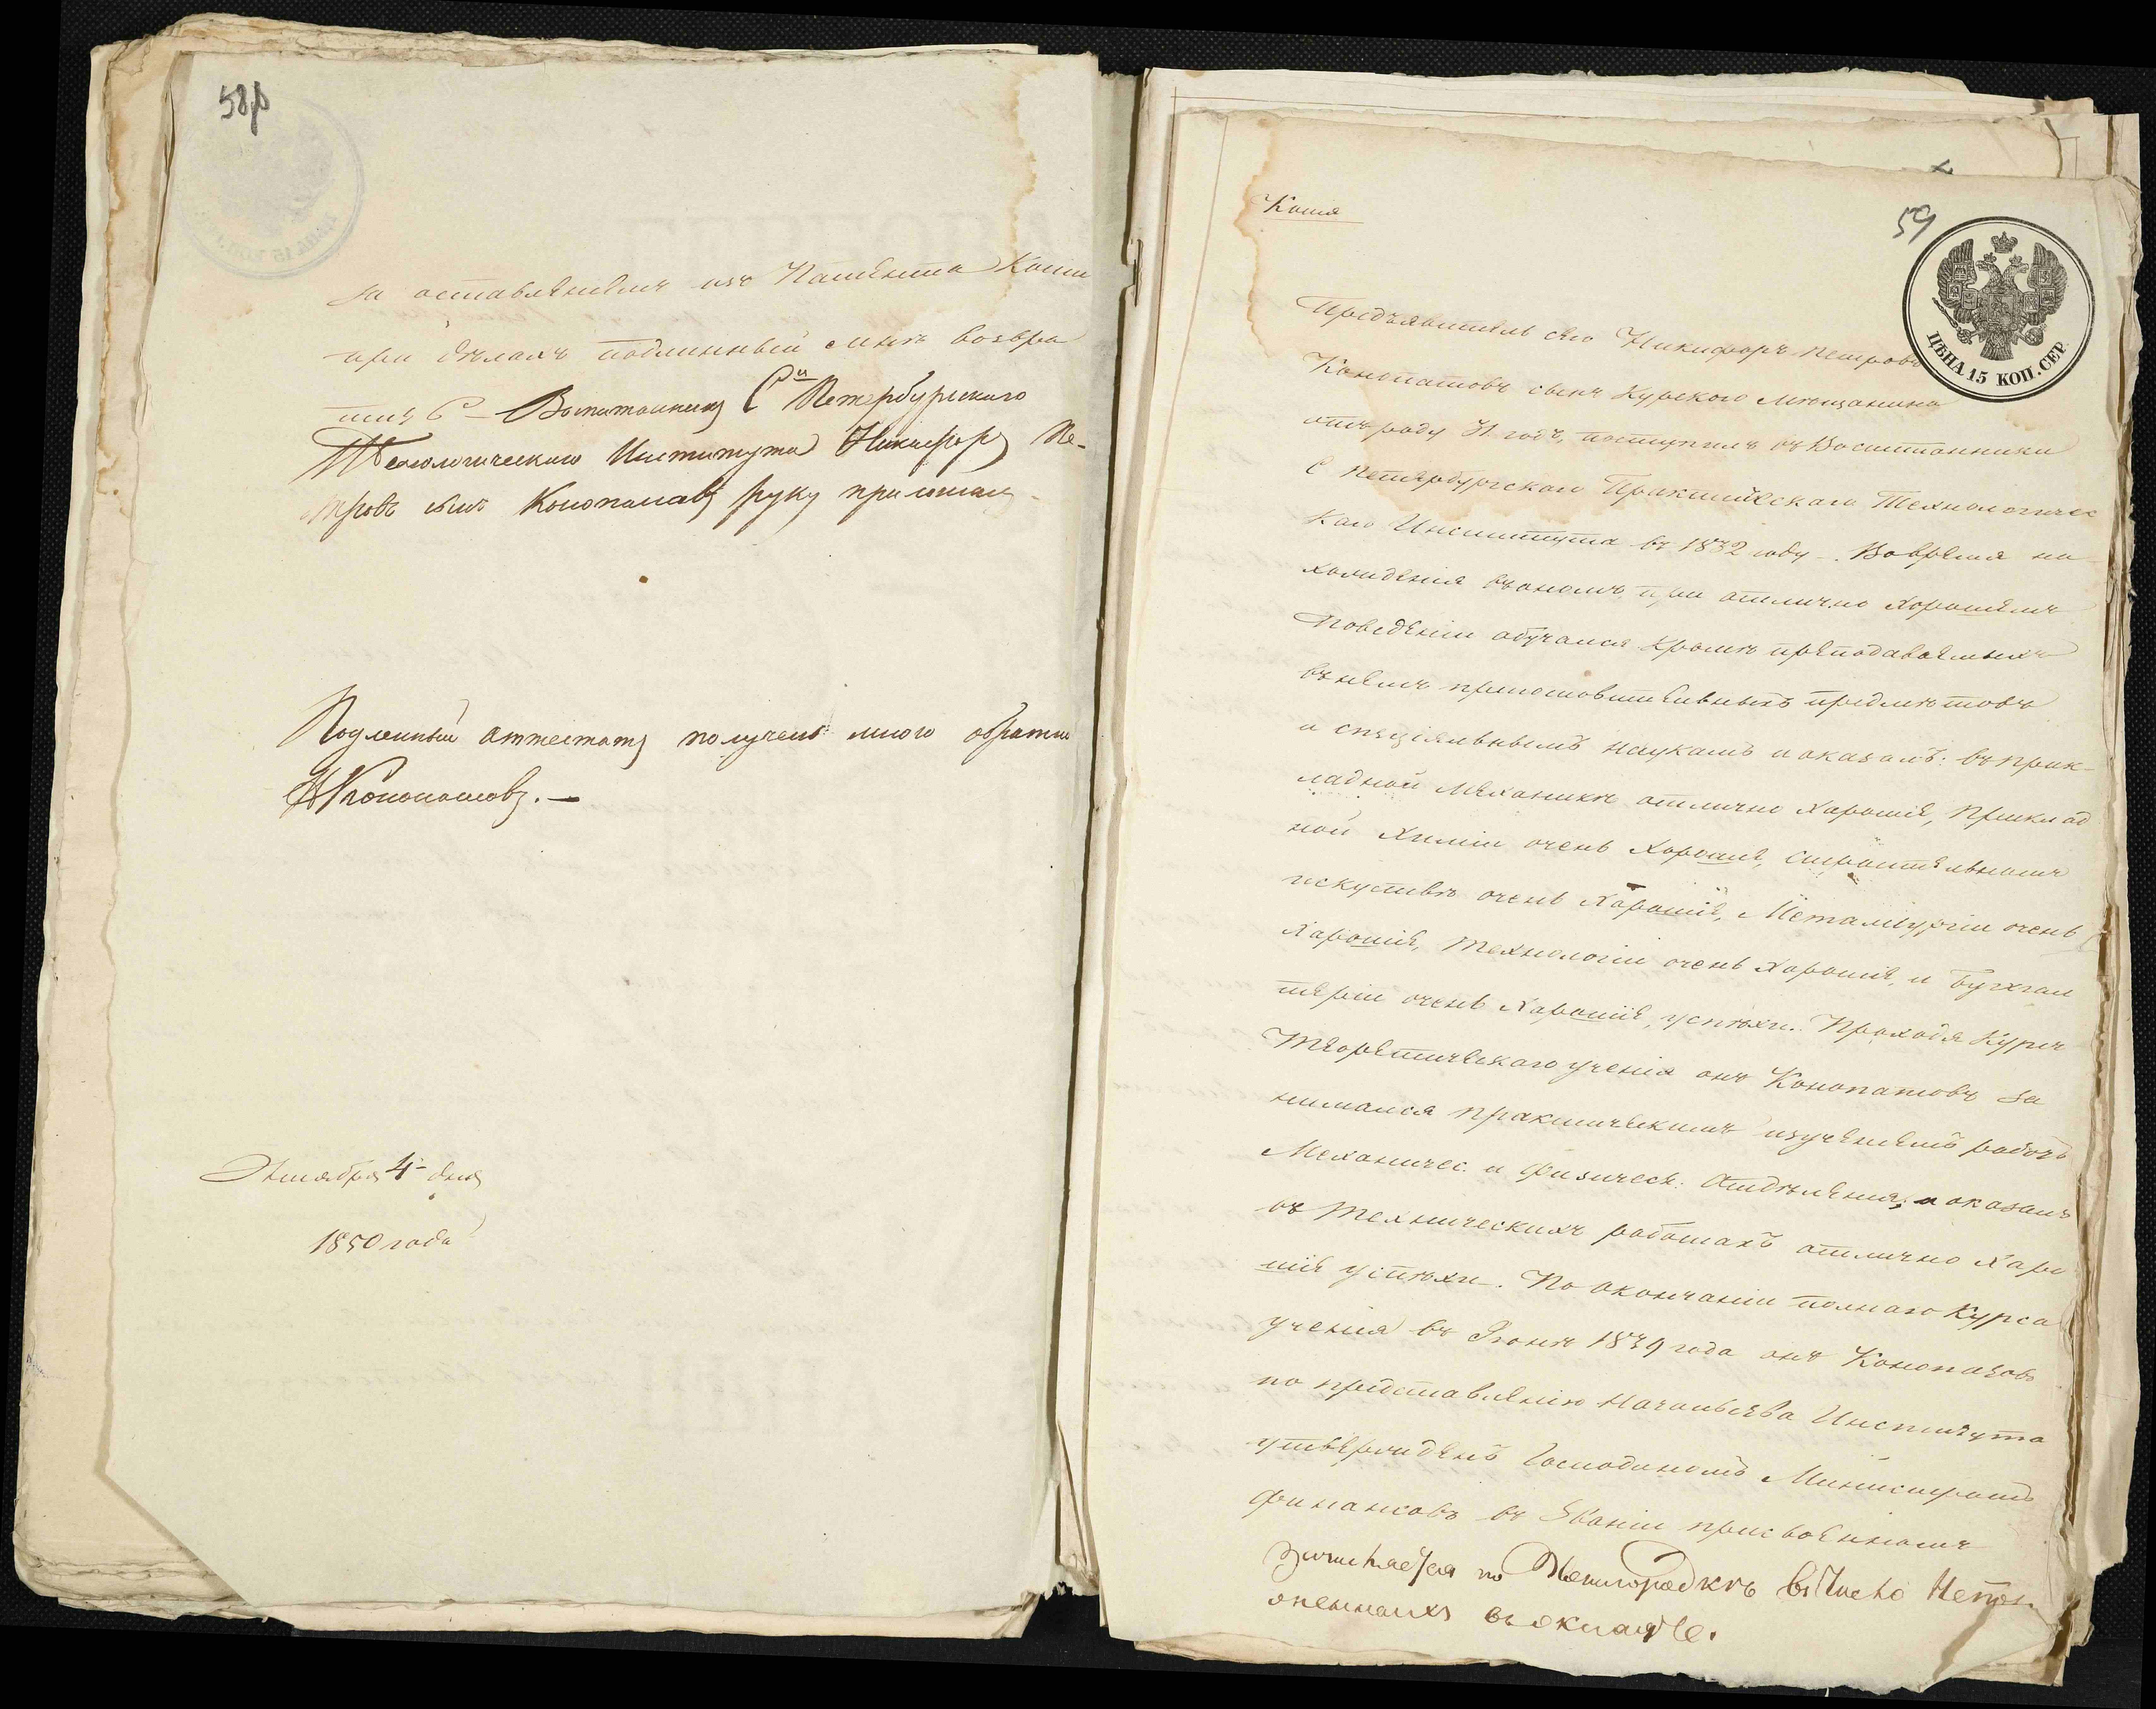 58об
за оставленіемъ изъ Патента Копіи
при дѣлахъ подлинный мнѣ возвра
тить С Воспитанникъ Сн Петербурскаго
Технологическаго Института Никифоръ Пе-
тровъ сынъ Конопатовъ руку приложилъ
Подленный аттестатъ получилъ много обратно
Н Конопатовъ. —
Октября 4- дня
1850 года
59
Копія
ЦѢНА 15 КОП. СЕР.
Предъявитель сего Никифоръ Петровъ
Конопатовъ сынъ Курскаго мѣщанина
отъ роду 31 годъ, поступилъ въ Воспитанники
С Петербургскаго Практическаго Технологичес
каго Института въ 1832 году. Вовремя на
хожденія въ ономъ, при отлично хорошемъ
поведеніи обучался кромѣ преподаваемыхъ
въ немъ приготовительныхъ предметовъ
и спеціяльнымъ наукамъ и оказалъ: въ прик-
ладной Механикѣ отлично хорошіе, Приклад
ной Химіи очень хорошіе, строительномъ
искуствѣ очень хорошіе, Металлургіи очень
хорошіе, Технологіи очень хорошіе, и Бухгал
теріи очень хорошіе, успѣхи. Проходя Курсъ
Теоретическаго ученія онъ Конопатовъ за
нимался практическимъ изученіемъ работъ
Механичес. и Физическ. Отдѣленія, и оказалъ
въ техническихъ работахъ отлично хоро
шіе успѣхи. По окончаніи полнаго Курса
ученія въ Іюнѣ 1839 года онъ Конопатовъ
по представленію Начальства Института
утвержденъ Господиномъ Министромъ
финансовъ въ Званіи присвоенномъ
въ число
въ окладѣ.